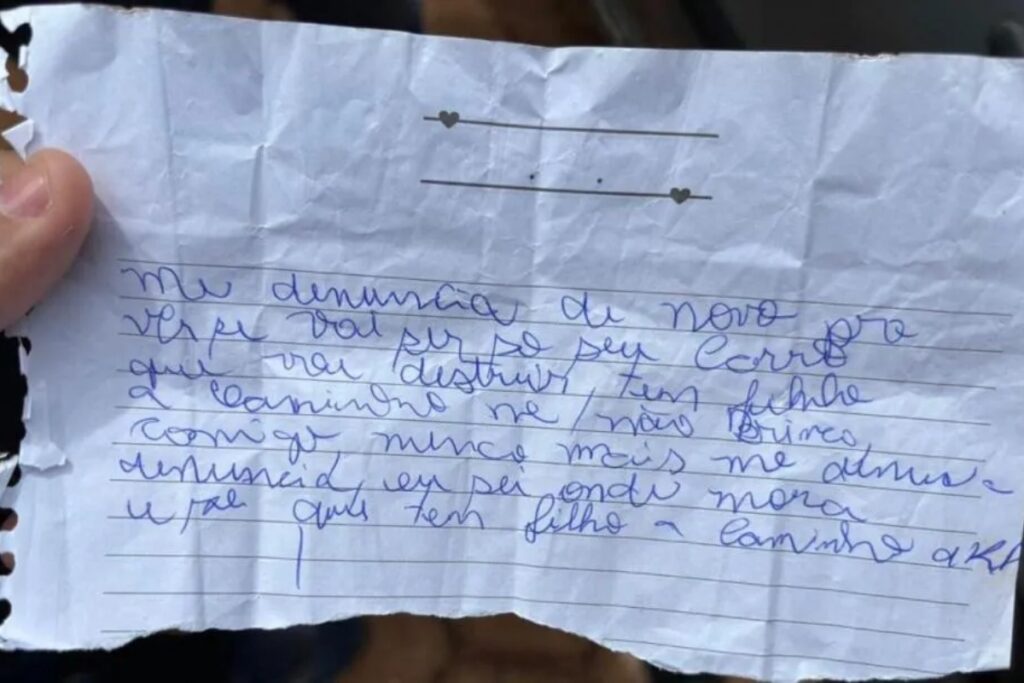 me denuncia de novo pra
ver se vai ser só seu carro
que vai destruir, tem filho
a caminho né, não brinca
comigo, nunca mais me
denuncia, eu sei onde mora
e que tem filho a caminho